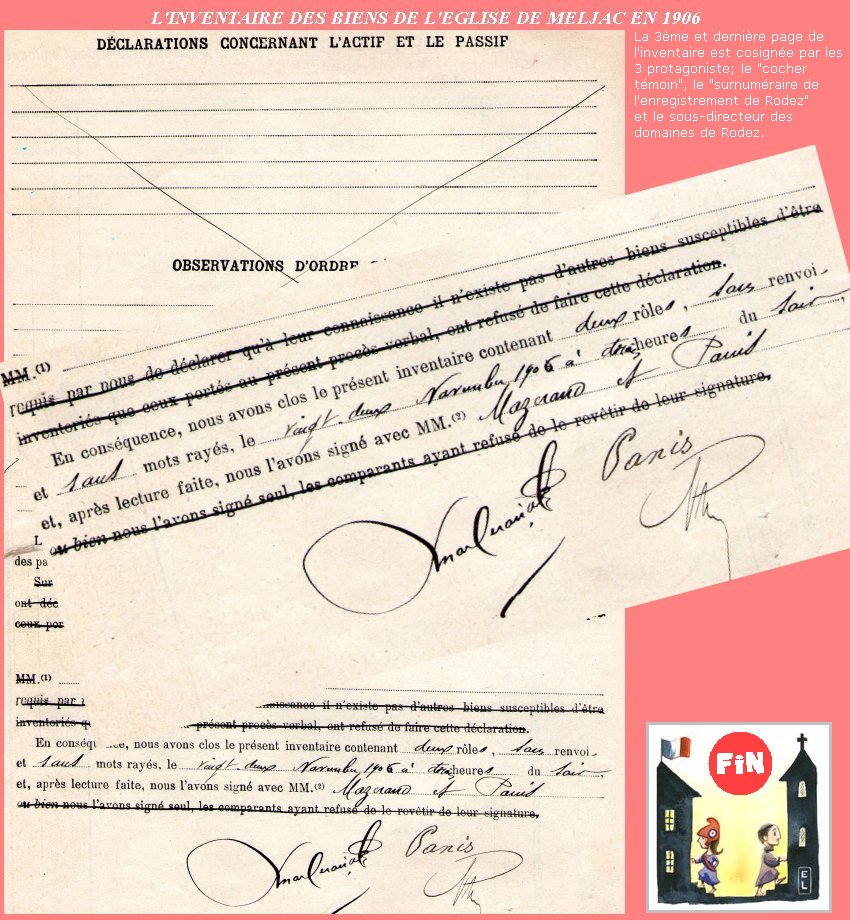 L'INVENTAIRE DES BIENS DE L'EGLISE DE MELJAC EN 1906
La 3ème et dernière page de
l'inventaire est cosignée par les
3 protagoniste; le "cocher
témoin", le "surnuméraire de
l'enregistrement de Rodez"
et le sous-directeur des
domaines de Rodez.
DÉCLARATIONS CONCERNANT L'ACTIF ET LE PASSIF
OBSERVATIONS D'ORDRE
MM.(1)
requis par nous de déclarer qu'à leur connaissance il n'existe pas d'autres biens susceptibles d'être
inventoriés que ceux portés au présent procès verbal, ont refusé de faire cette déclaration.
En conséquence, nous avons clos le présent inventaire contenant deux rôles, sans renvoi
et sans mots rayés, le vingt-deux Novembre 1906 à heures du soir,
et, après lecture faite, nous l'avons signé avec MM.(2) Mazerand et Panis
ou bien nous l'avons signé seul, les comparants ayant refusé de le revêtir de leur signature.
Panis
L
des pa
Sur
ont déc
ceux por
MM.(1)
requis par
aissance il n'existe pas d'autres biens susceptibles d'être
inventoriés q
présent procès-verbal, ont refusé de faire cette déclaration.
En conséq e, nous avons clos le présent inventaire contenant deux rôles, sans renvoi
et sans mots rayés, le vingt-deux Novembre 1906 à heures du soir,
et, après lecture faite, nous l'avons signé avec MM.(2) Mazerand et Panis
ou bien nous l'avons signé seul, les comparants ayant refusé de le revêtir de leur signature.
Panis
FiN
EL